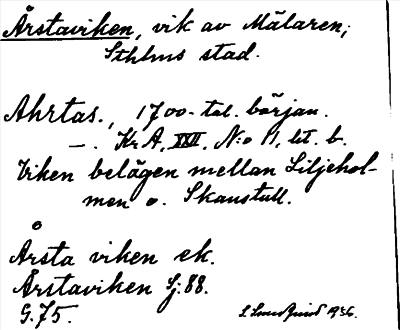 Årstaviken, vik av Mälaren;
Sthlms stad.
Ahrtas., 1700-tal. början.
—. Kr A, XXII, N:o 11, lit. b.
Viken belägen mellan Liljehol-
men o. Skanstull.
Årsta viken ek.
Årstaviken Gj: 88.
G. 75.
1936.